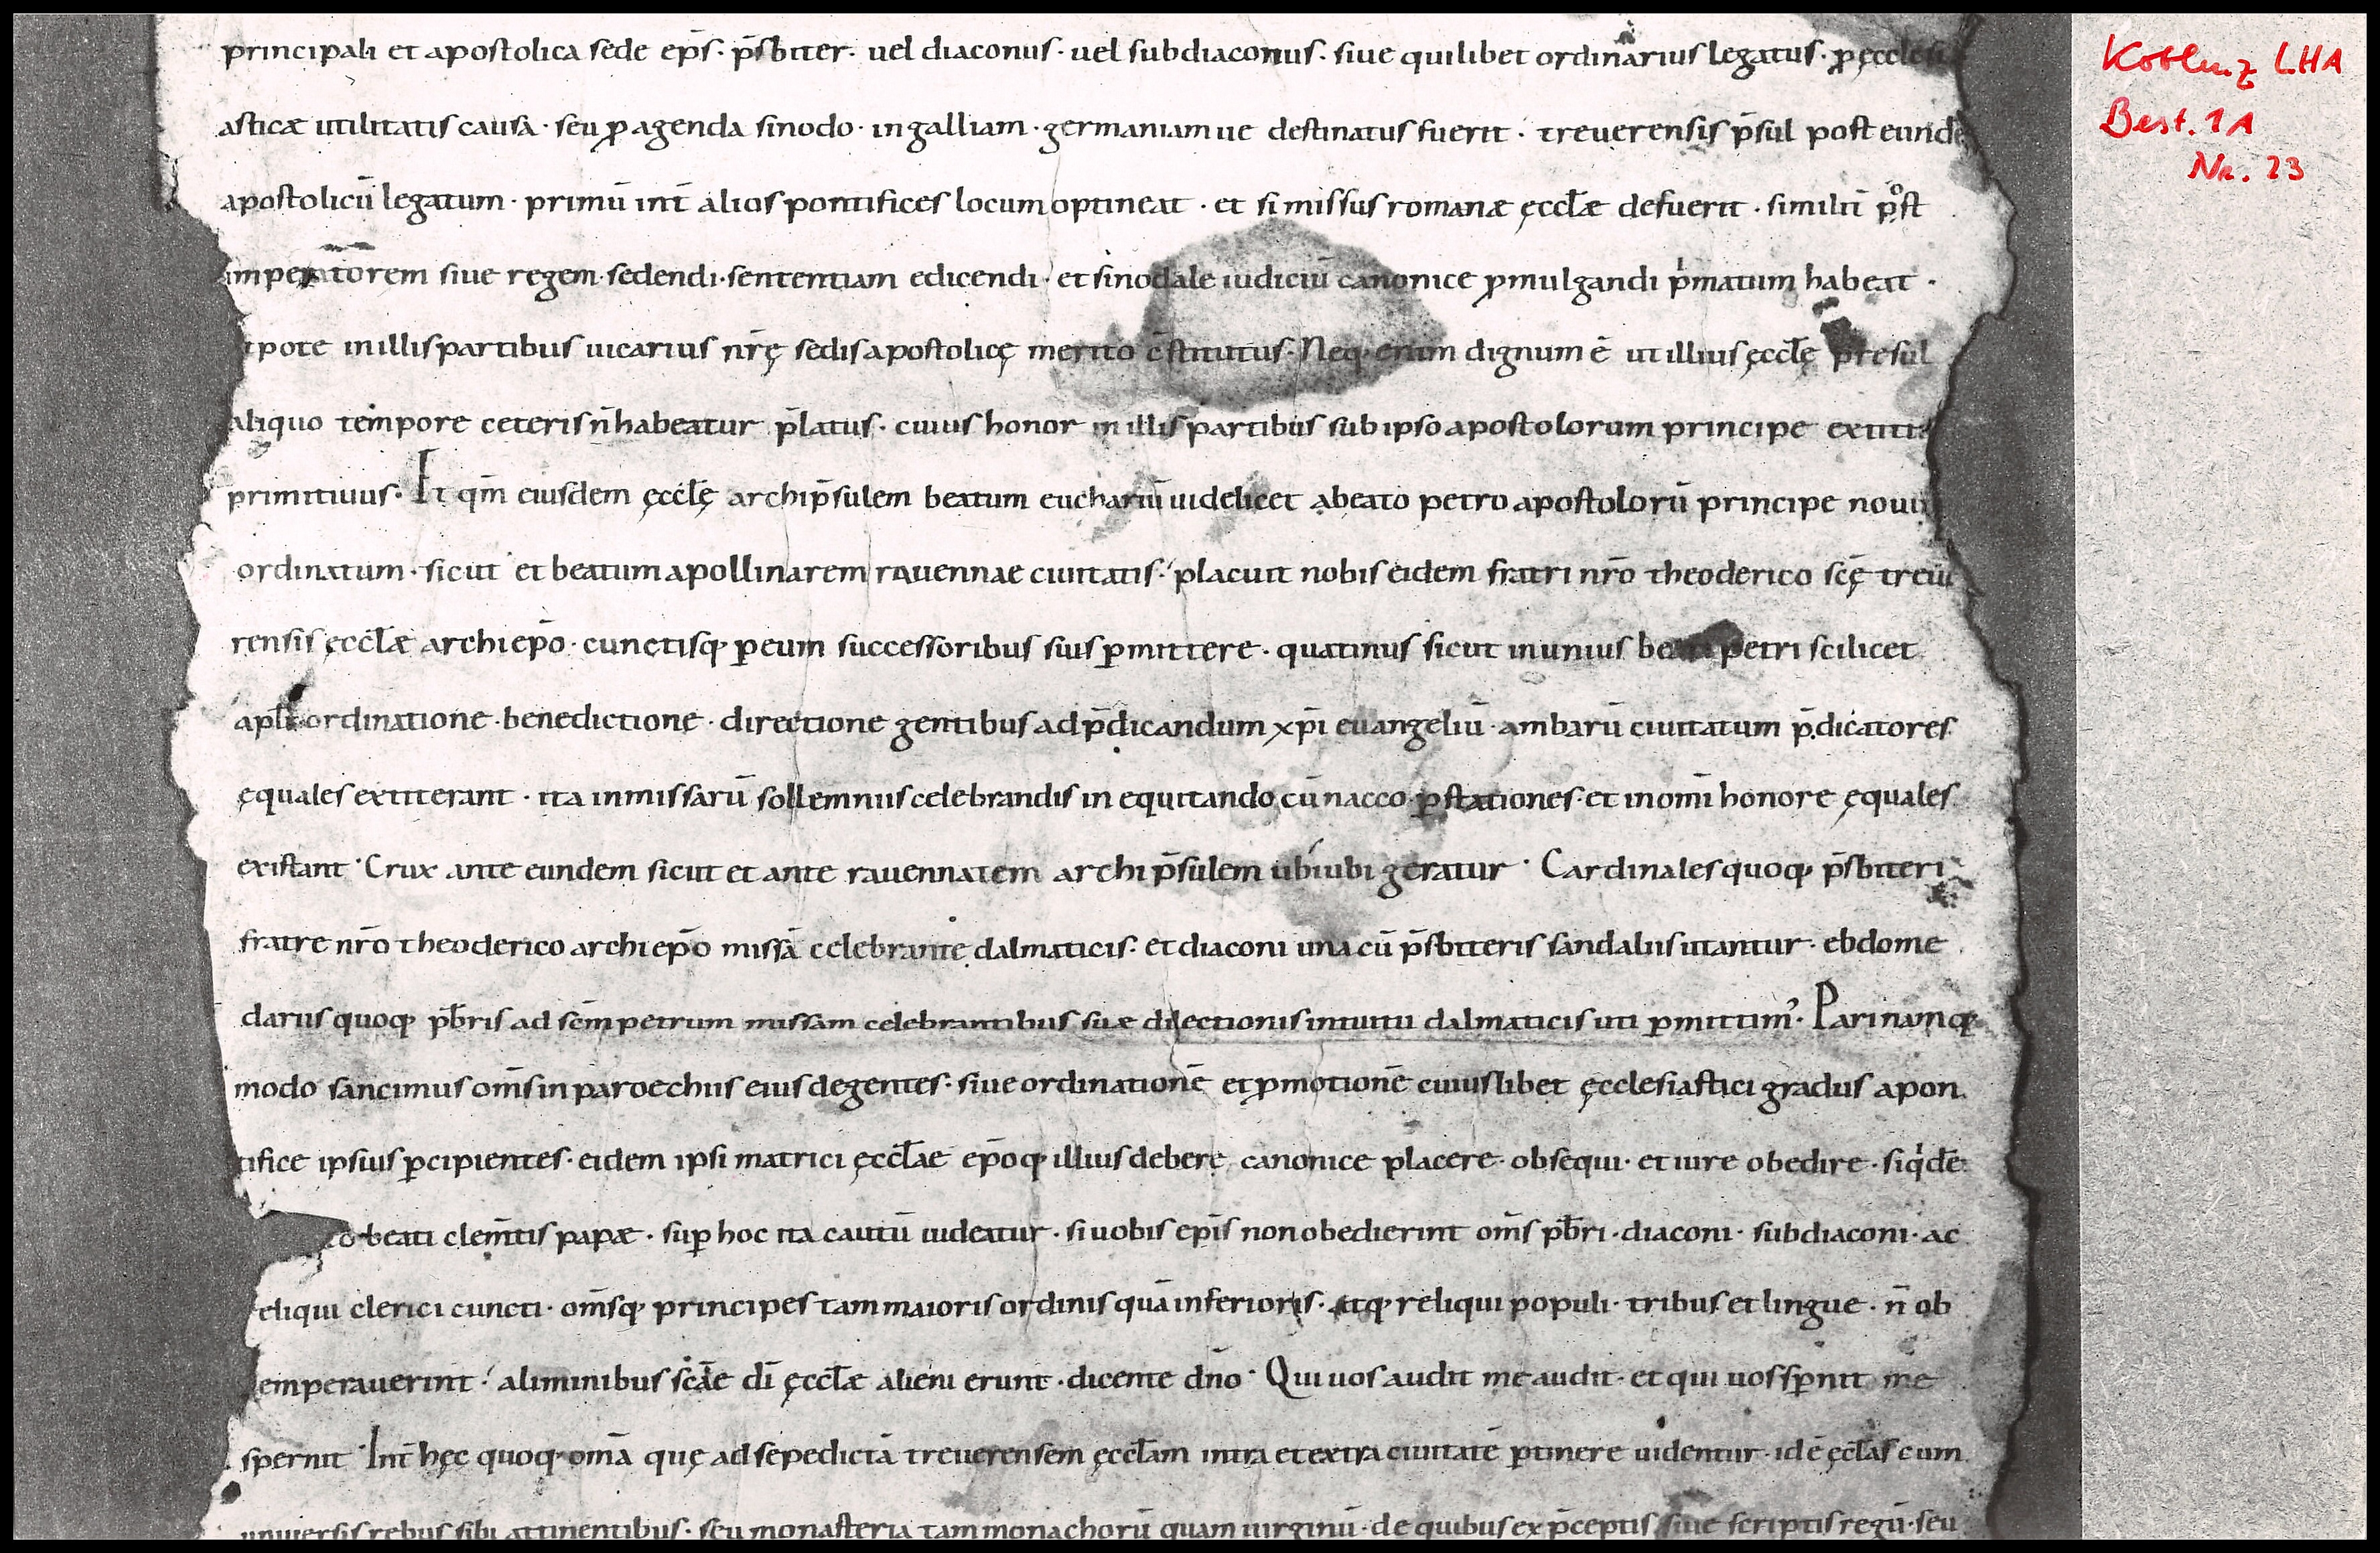 principali et apostolica sede ep̄s · p̄sbiter · uel diaconus · uel subdiaconus · siue quilibet ordinarius legatus · ꝓ ęcclesi
asticæ utilitatis causa · seu ꝓ agenda sinodo · in galliam · germaniam ue destinatus fuerit · treuerensis p̄sul post eundē
apostolicū legatum · primū int̄ alios pontifices locum optineat · et si missus romanæ ęccl̄æ defuerit · similit̄ post
imperatorem siue regem · sedendi · sententiam edicendi · et sinodale iudiciū canonice ꝓmulgandi pͥmatum habeat ·
tpote in illis partibus uicarius nr̄ę sedis apostolicę merito c̄stitutus · Neq· enim dignum ē ut illius ęccl̄ę presul
aliquo tempore ceteris n̄ habeatur p̄latus · cuius honor in illis partibus sub ipso apostolorum principe extitit
primitiuus · Et qm̄ eiusdem ęccl̄ę archip̄sulem beatum euchariū uidelicet a beato petro apostolorū principe nouim
ordinatum · sicut et beatum apollinarem rauennae ciuitatis · placuit nobis eidem fratri nr̄o theoderico sc̄ę treue
rensis ęccl̄æ archiep̄o · cunctisq· p eum successoribus suis ꝑmittere · quatinus sicut in unius beati petri scilicet
apl̄i ordinatione · benedictione · directione gentibus ad p̄dicandum xp̄i euangeliū · ambarū ciuitatum p̄dicatores
ęquales extiterant · ita in missarū sollemniis celebrandis in equitando cū nacco · p̱stationes · et in omi̅ honore ęquales
existant · Crux ante eundem sicut et ante rauennatem archip̄sulem ubiubi geratur · Cardinales quoq· p̄sbiteri
fratre nr̄o theoderico archiep̄o missā celebrante dalmaticis · et diaconi una cū p̄sbiteris sandaliis utantur · ebdome
dariis quoq· pb̄ris ad sc̄m petrum missam celebrantibus suæ dilectionis intuitu dalmaticis uti ꝑmittimꝰ · Pari namq·
modo sancimus om̄s in paroechiis eius degentes · siue ordinationē et ꝓmotionē cuiuslibet ęcclesiastici gradus a pon
tifice ipsius ꝑcipientes · eidem ipsi matrici ęccl̄ae ep̄oq· illius debere canonice placere · obsequi · et iure obedire · siqͥdē
beati clem̄tis papæ · suꝑ hoc ita cautū uideatur · si uobis ep̄is non obedierint om̄s pb̄ri · diaconi · subdiaconi · ac
eliqui clerici cuncti · om̄sq· principes tam maioris ordinis quā inferioris · atq· reliqui populi · tribus et lingue · n̄ ob
emperauerint · a liminibus sc̄ae dī ęccl̄æ alieni erunt · dicente dn̄o · Qui uos audit me audit · et qui uos sꝑnit me
spernit · Int̄ hęc quoq· om̄a quę ad sepedictā treuerensem ęccl̄am intra et extra ciuitatē ꝑtinere uidentur · idē ęccl̄as cum
uniuersis rebus sibi attinentibus · seu monasteria tam monachorū quam uirginū · de quibus ex p̄ceptis siue scriptis regū · seu
Koblenz LHA
Best. 1A
Nr. 23